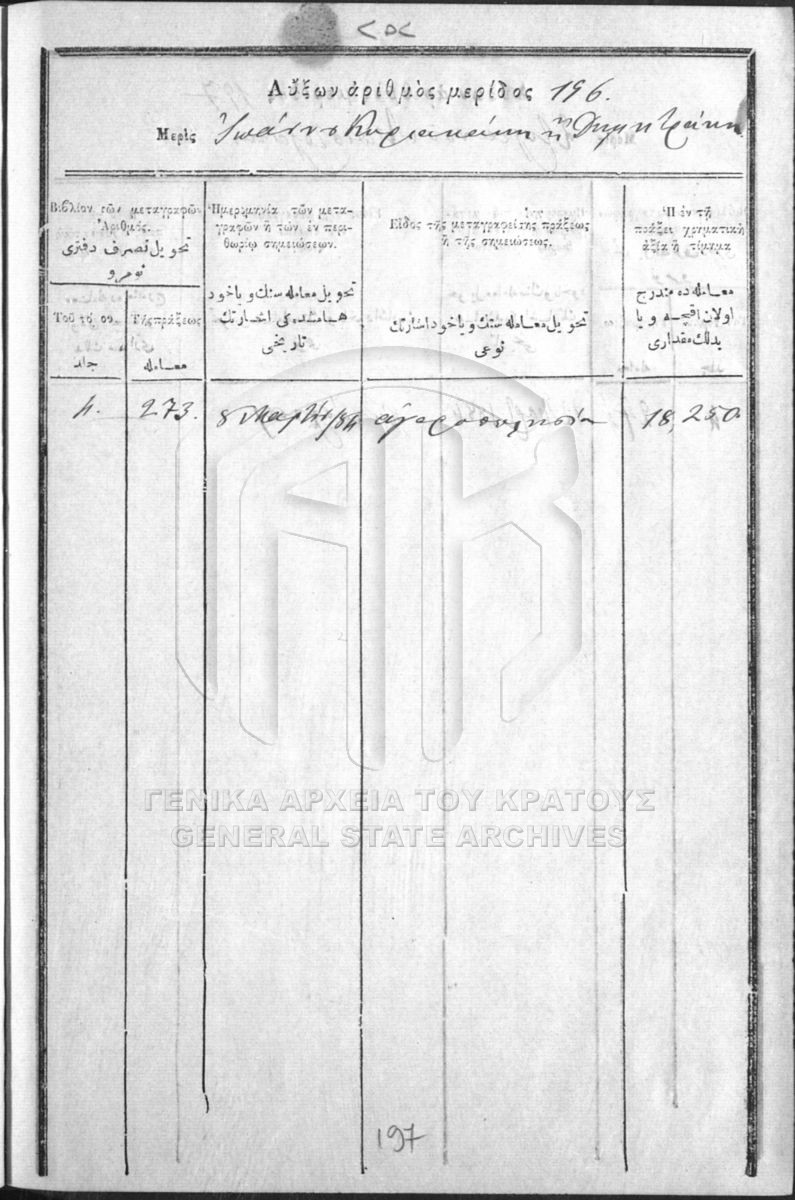 Αὔξων ἀριθμὸς μερίδος 196.
Μερὶς Ἰωάννου Κυριακάκη ἢ Δημητράκη
Βιβλίον τῶν μεταγραφῶν
Ἀριθμός.
تحويل تصرف دفترى
نومرو
Τοῦ τόμου.
جلد
Τῆς πράξεως
معامله
Ἡμερομηνία τῶν μετα-
γραφῶν ἢ τῶν ἐν περι-
θωρίῳ σημειώσεων.
تحويل معامله سنك و ياخود
هامشده كى اشارتك
تاريخى
Εἶδος τῆς μεταγραφείσης πράξεως
ἢ τῆς σημειώσεως.
تحويل معامله سنك و ياخود اشارتك
نوعى
Ἡ ἐν τῇ
πράξει χρηματικὴ
ἀξία ἢ τίμημα
معامله ده مندرج
اولان اقچه و يا
بدلك مقدارى
4. 273. 8 Μαρτίου/84 ἀγοραπωλησία 18,250.
ΓΕΝΙΚΑ ΑΡΧΕΙΑ ΤΟΥ ΚΡΑΤΟΥΣ
GENERAL STATE ARCHIVES
197